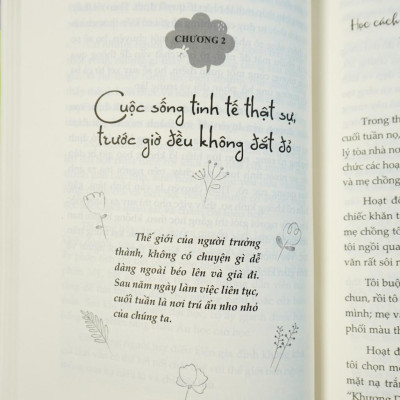 CHƯƠNG 2
Cuộc sống tinh tế thật sự,
trước giờ đều không đắt đỏ
Thế giới của người trưởng
thành, không có chuyện gì dễ
dàng ngoài béo lên và già đi.
Sau năm ngày làm việc liên tục,
cuối tuần là nơi trú ẩn nho nhỏ
của chúng ta.
Học cách
Trong th
cuối tuần nọ,
lý tòa nhà nơ
chức các hoạ
và mẹ chồng
Hoạt đ
chiếc khăn t
mẹ chồng tô
tôi ngồi qua
văn rất sôi n
Tôi buộ
chun, rồi tô
mình; mẹ v
phối màu th
Hoạt đ
tôi chọn mộ
mặt nạ trắn
"Khương D